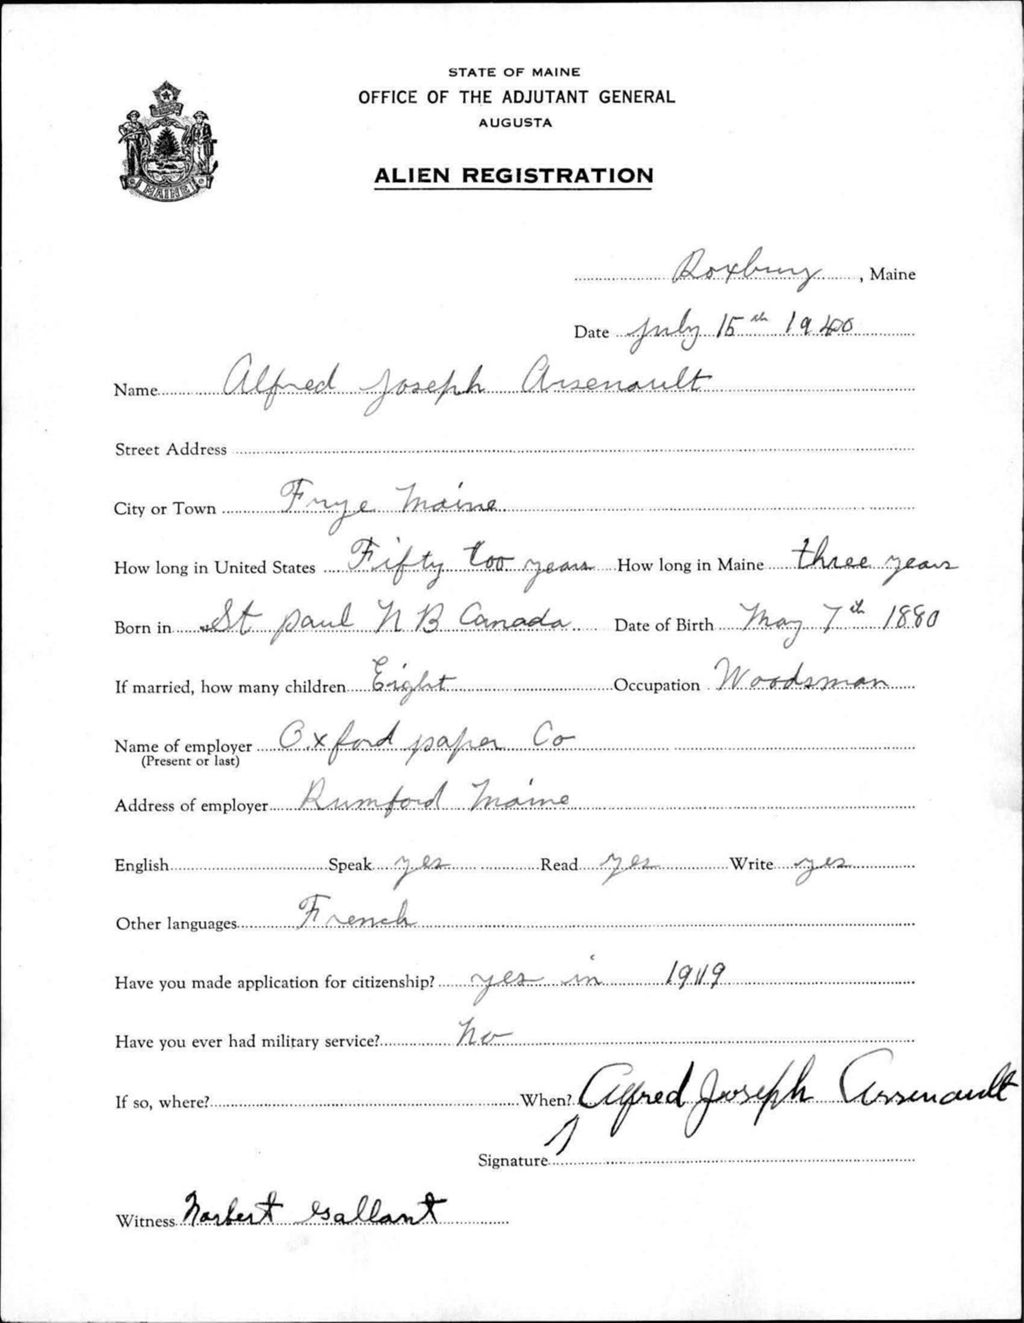 STATE OF MAINE
OFFICE OF THE ADJUTANT GENERAL
AUGUSTA
ALIEN REGISTRATION
MAINE
Roxbury, Maine
Date July 15th 1940
Name Alfred Joseph Arsenault
Street Address
City or Town Frye Maine
How long in United States Fifty too years How long in Maine three years
Born in St paul N B Canada Date of Birth May 7th 1880
If married, how many children Eight Occupation Woodsman
Name of employer Oxford paper Co
(Present or last)
Address of employer Rumford Maine
English Speak yes Read yes Write yes
Other languages French
Have you made application for citizenship? yes in 1919
Have you ever had military service? No
If so, where? When? Alfred Joseph Arsenault
Signature
Witness Norbert Gallant